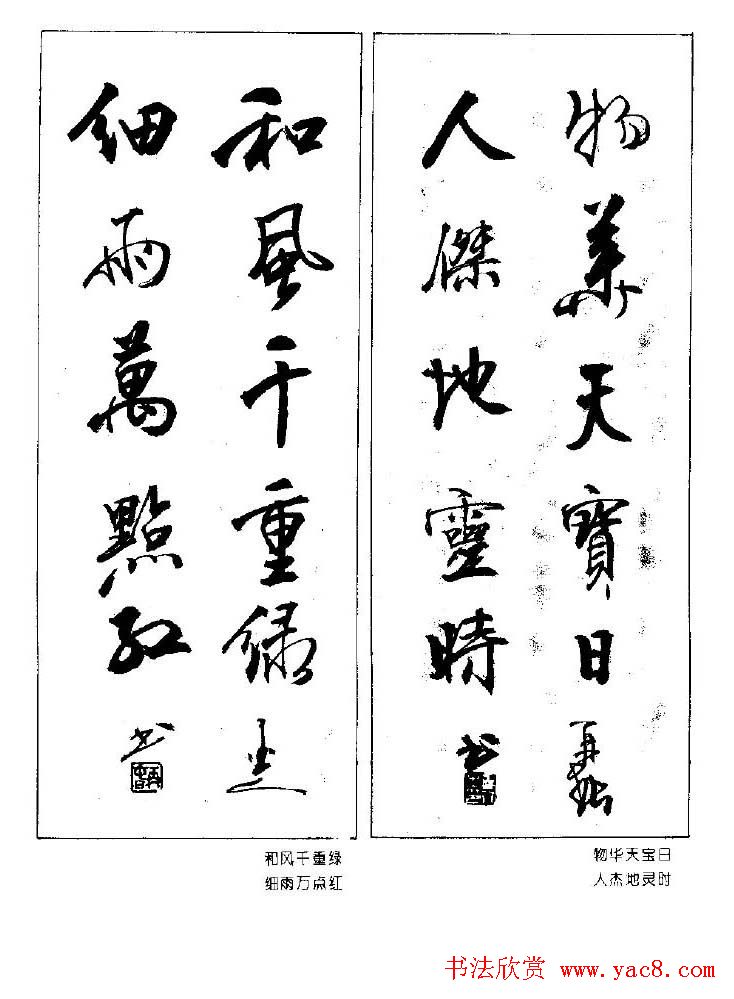 物華天寶日
人傑地靈時
書
和風千重綠
細雨萬點紅
書
物华天宝日
人杰地灵时
和风千重绿
细雨万点红
书法欣赏 www.yac8.com